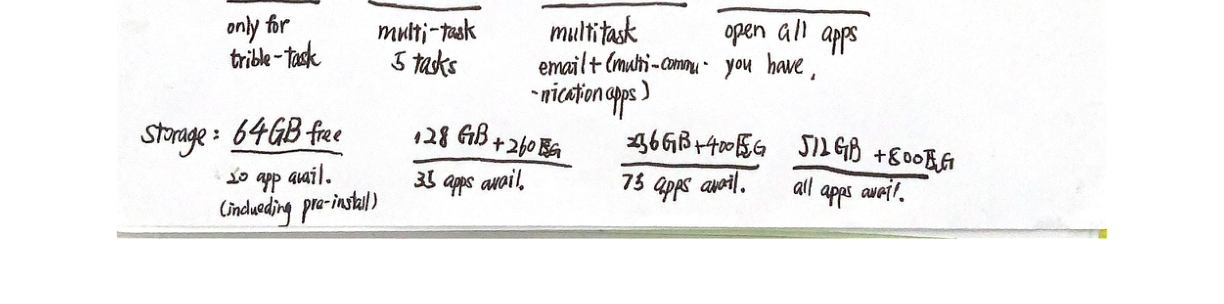 only for multi-task multitask open all apps
trible-task 5 tasks email+(multi-commu- you have,
-nication apps)
Storage: 64GB free 128 GB +260 256GB+400 512GB +800
20 app avail. 35 apps avail. 75 apps avail. all apps avail.
(inclueding pre-install)